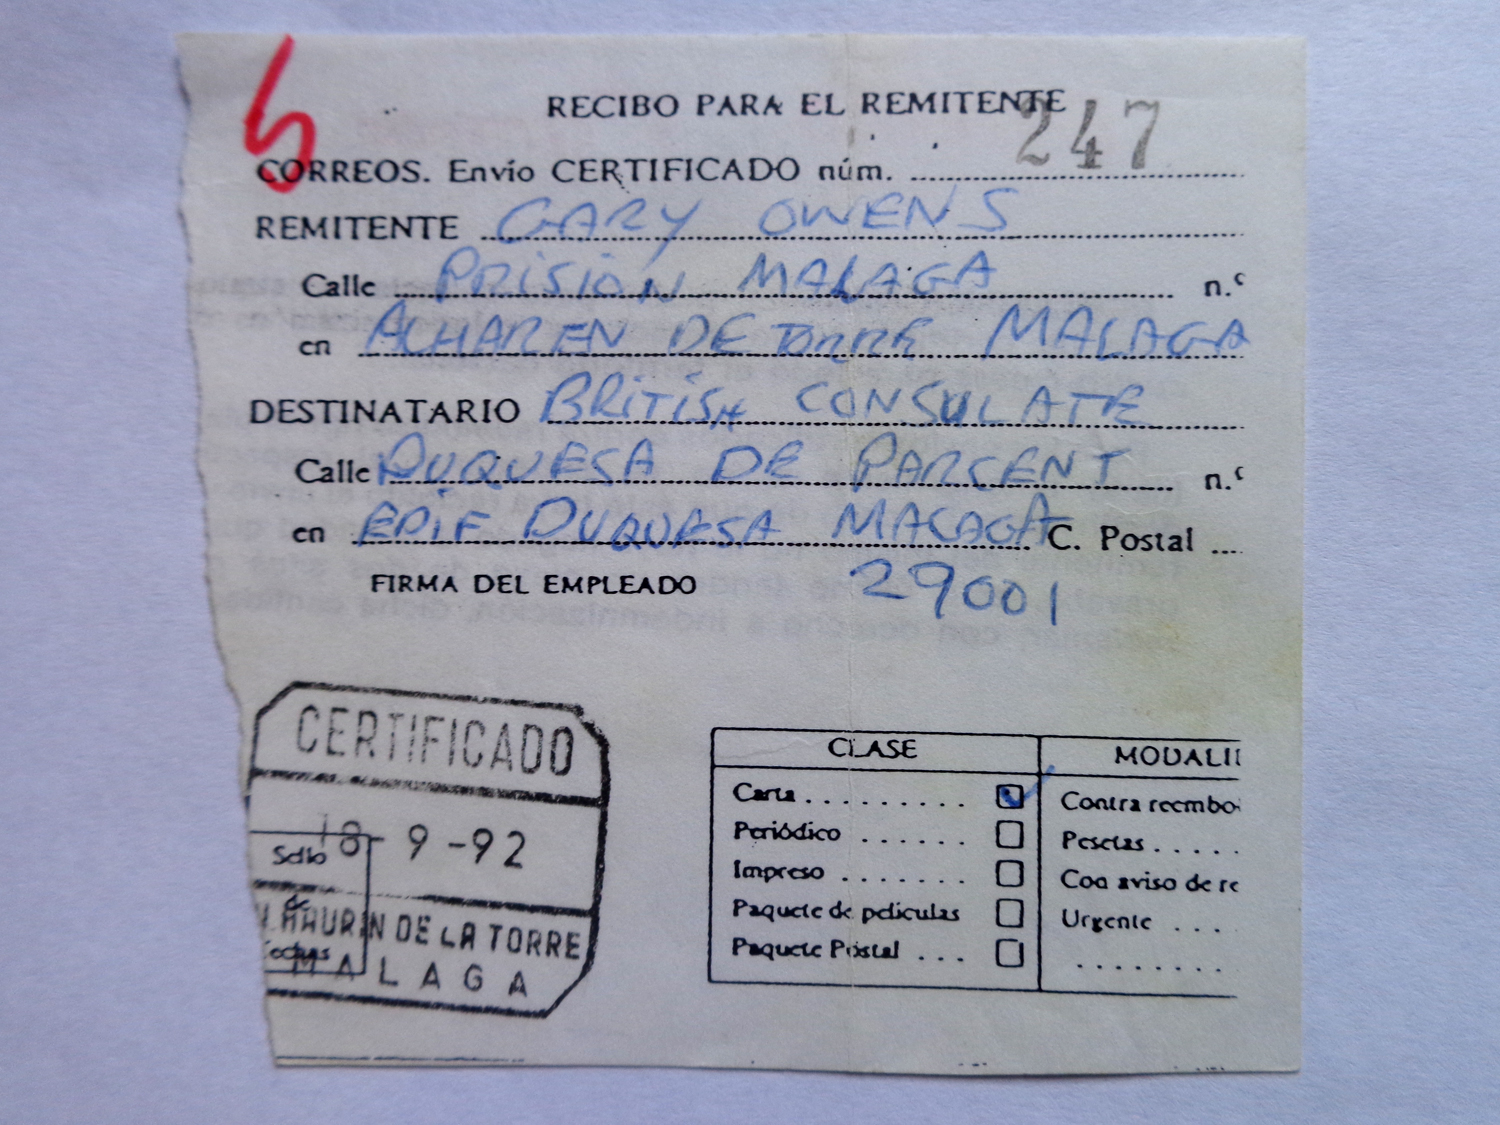 RECIBO PARA EL REMITENTE
247
CORREOS. Envío CERTIFICADO núm.
REMITENTE GARY OWENS
Calle PRISION MALAGA n.º
en ALHAREN DE TORRE MALAGA
DESTINATARIO BRITISH CONSULATE
Calle DUQUESA DE PARCENT n.º
en EDIF DUQUESA MALAGA C. Postal ....
29001
FIRMA DEL EMPLEADO
CERTIFICADO
18-9-92
Sello
de
fechas
HAURIN DE LA TORRE
MALAGA
CLASE MODALI
Carta . . . . . . . . . Contra reembo
Periódico . . . . . . Pesetas . . . . .
Impreso . . . . . . . Con aviso de re
Paquete de películas Urgente . . . .
Paquete Postal . . .